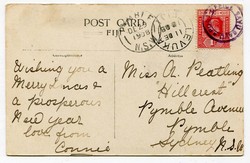 POST CARD
FIJI
LEVUKA
Wishing you a
Merry Xmas &
a prosperous
New Year
love from
Connie
Miss A. Peatling
"Hillcrest"
Pymble Avenue
Pymble
Sydney
N.S.W.